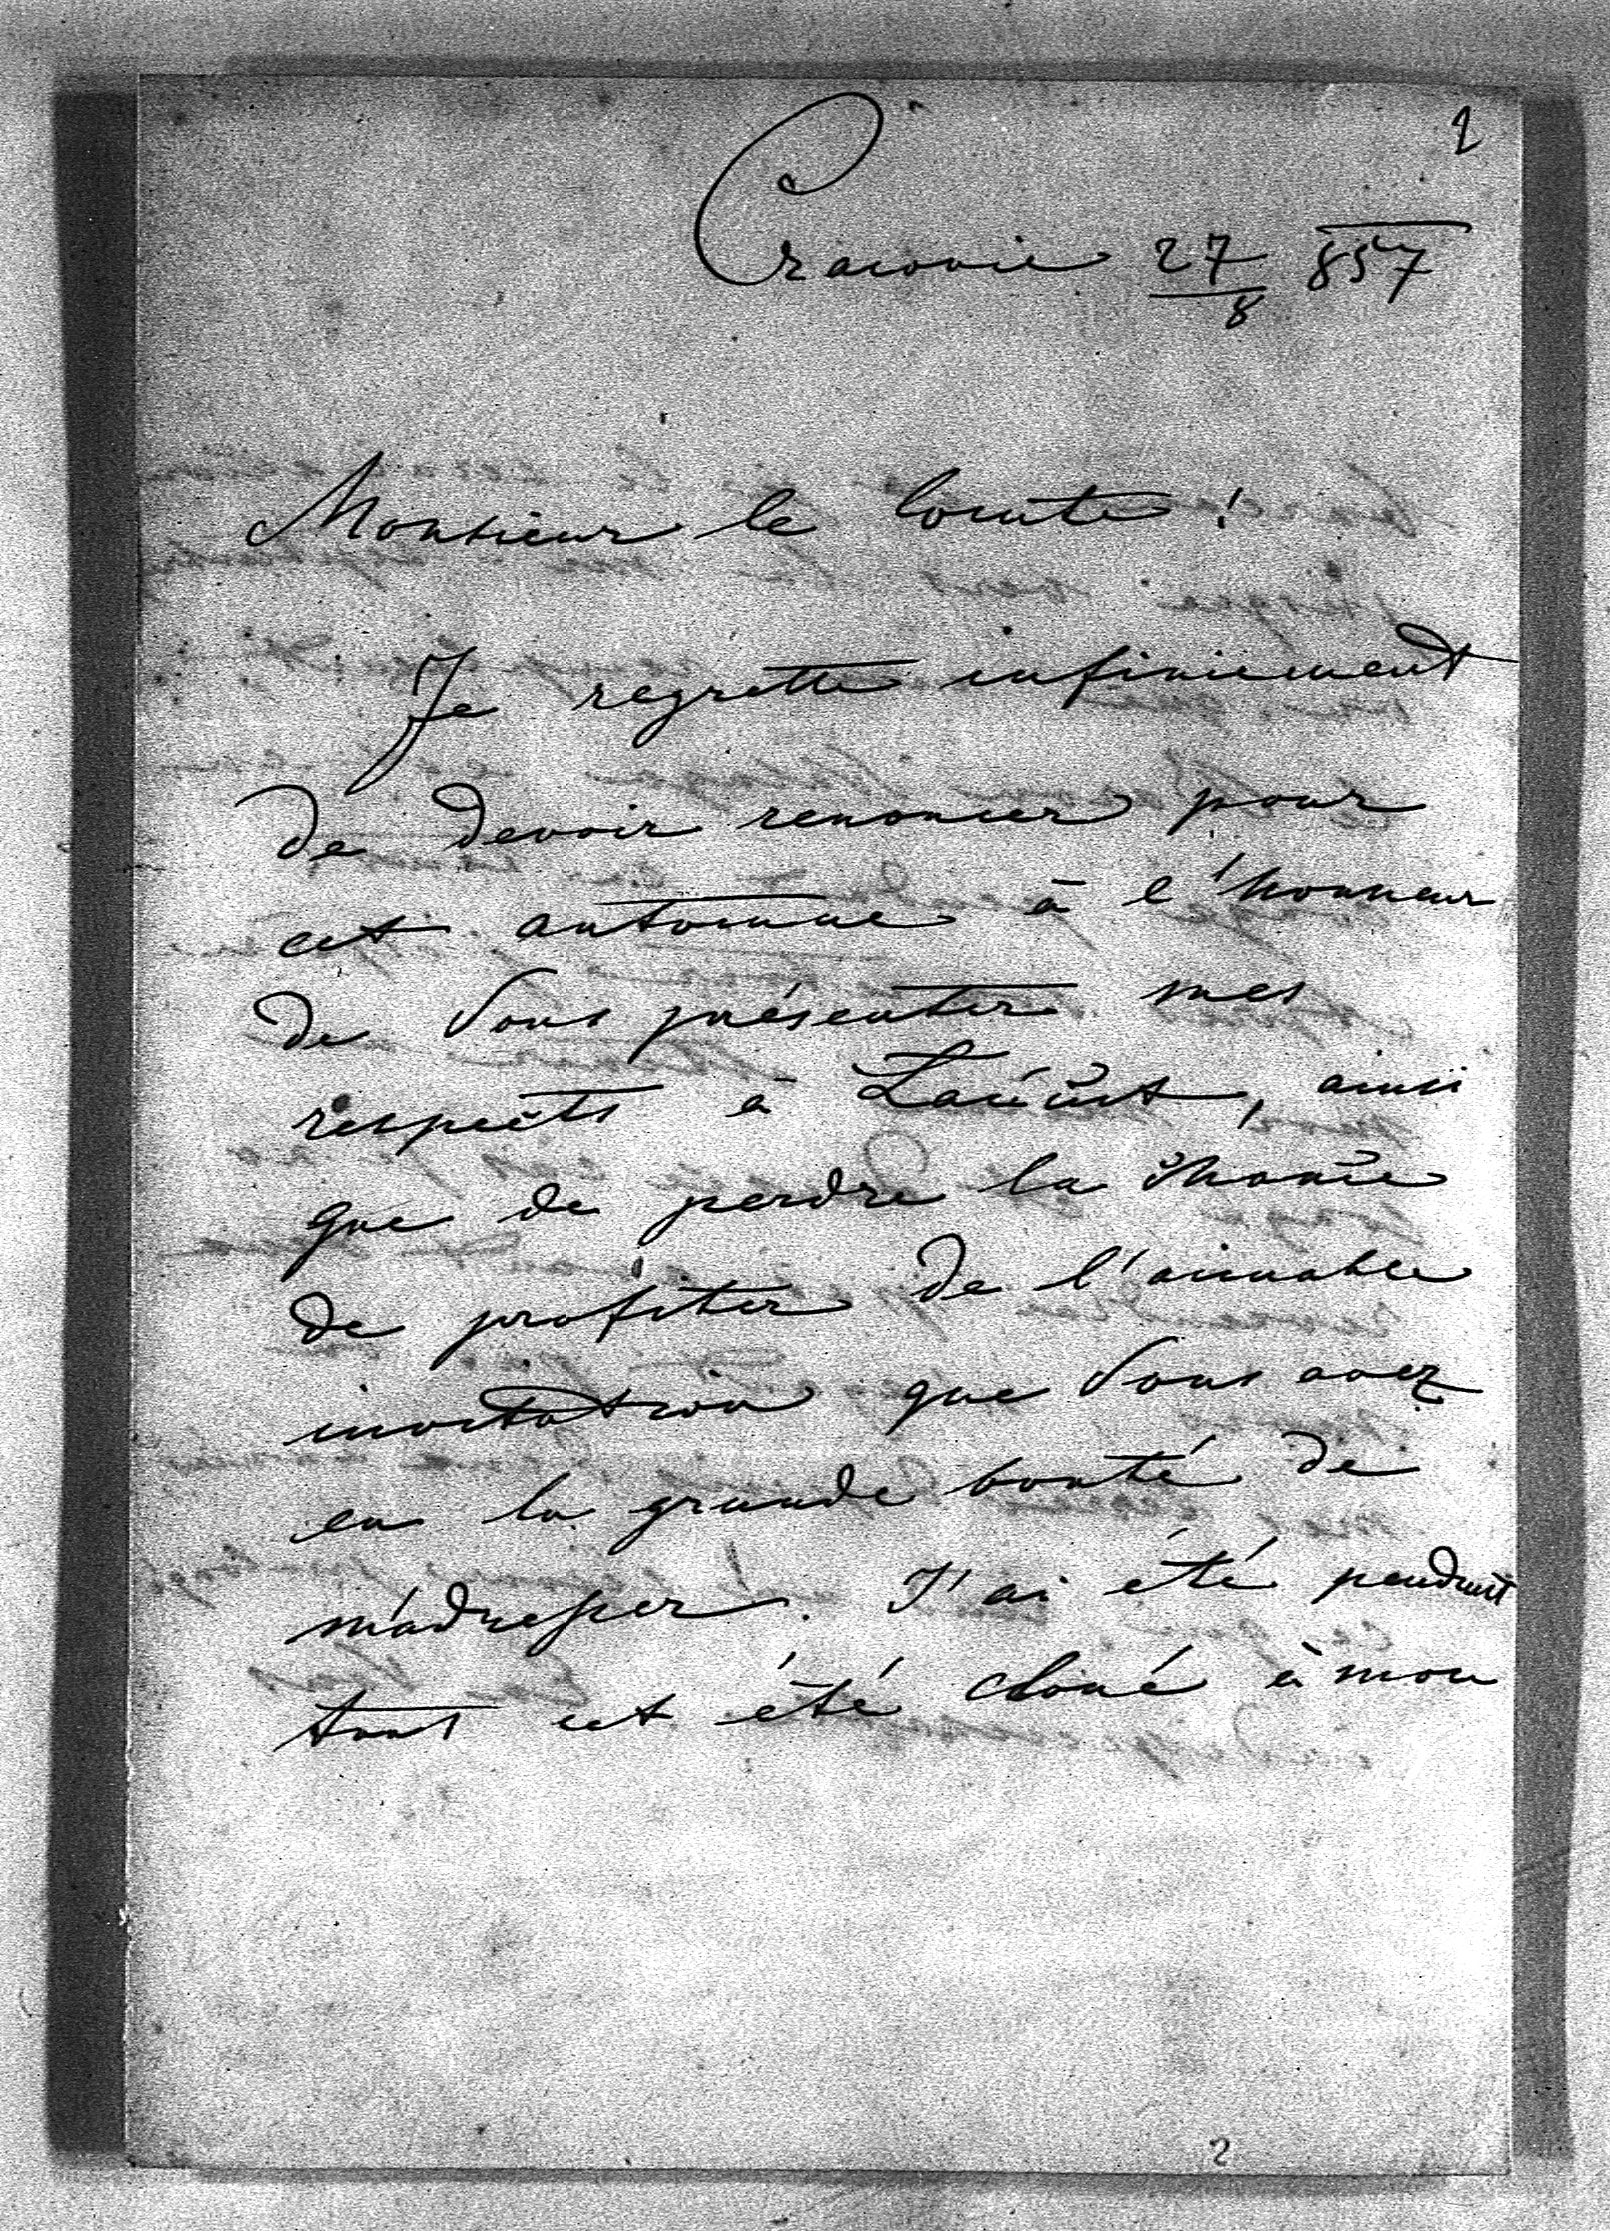 2
Cracovie 27/8 857
Monsieur le Comte!
Je regrette infiniement
de devoir renoncer pour
cet automne à l'honneur
de Vous présenter mes
respects à Łańcut, ainsi
que de perdre la chance
de profiter de l'aimable
invitation que Vous avez
eu la grande bonté de
m'adresser. J'ai été pendant
tout cet été cloué à mon
2